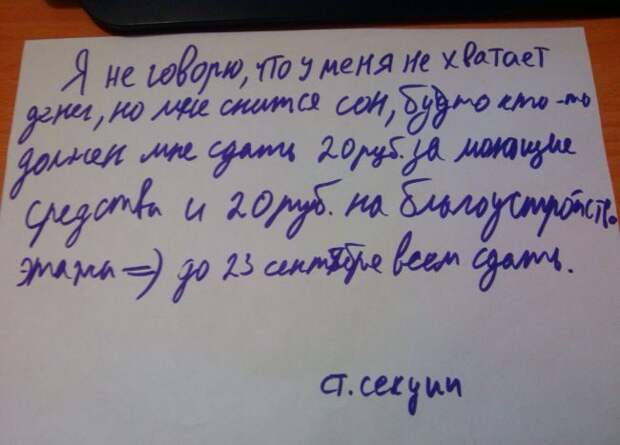 Я не говорю, что у меня не хватает
денег, но мне снится сон, будто кто-то
должен мне сдать 20 руб. за моющие
средства и 20 руб. на благоустройств.
этажа =) до 23 сентября всем сдать.
ст. секции